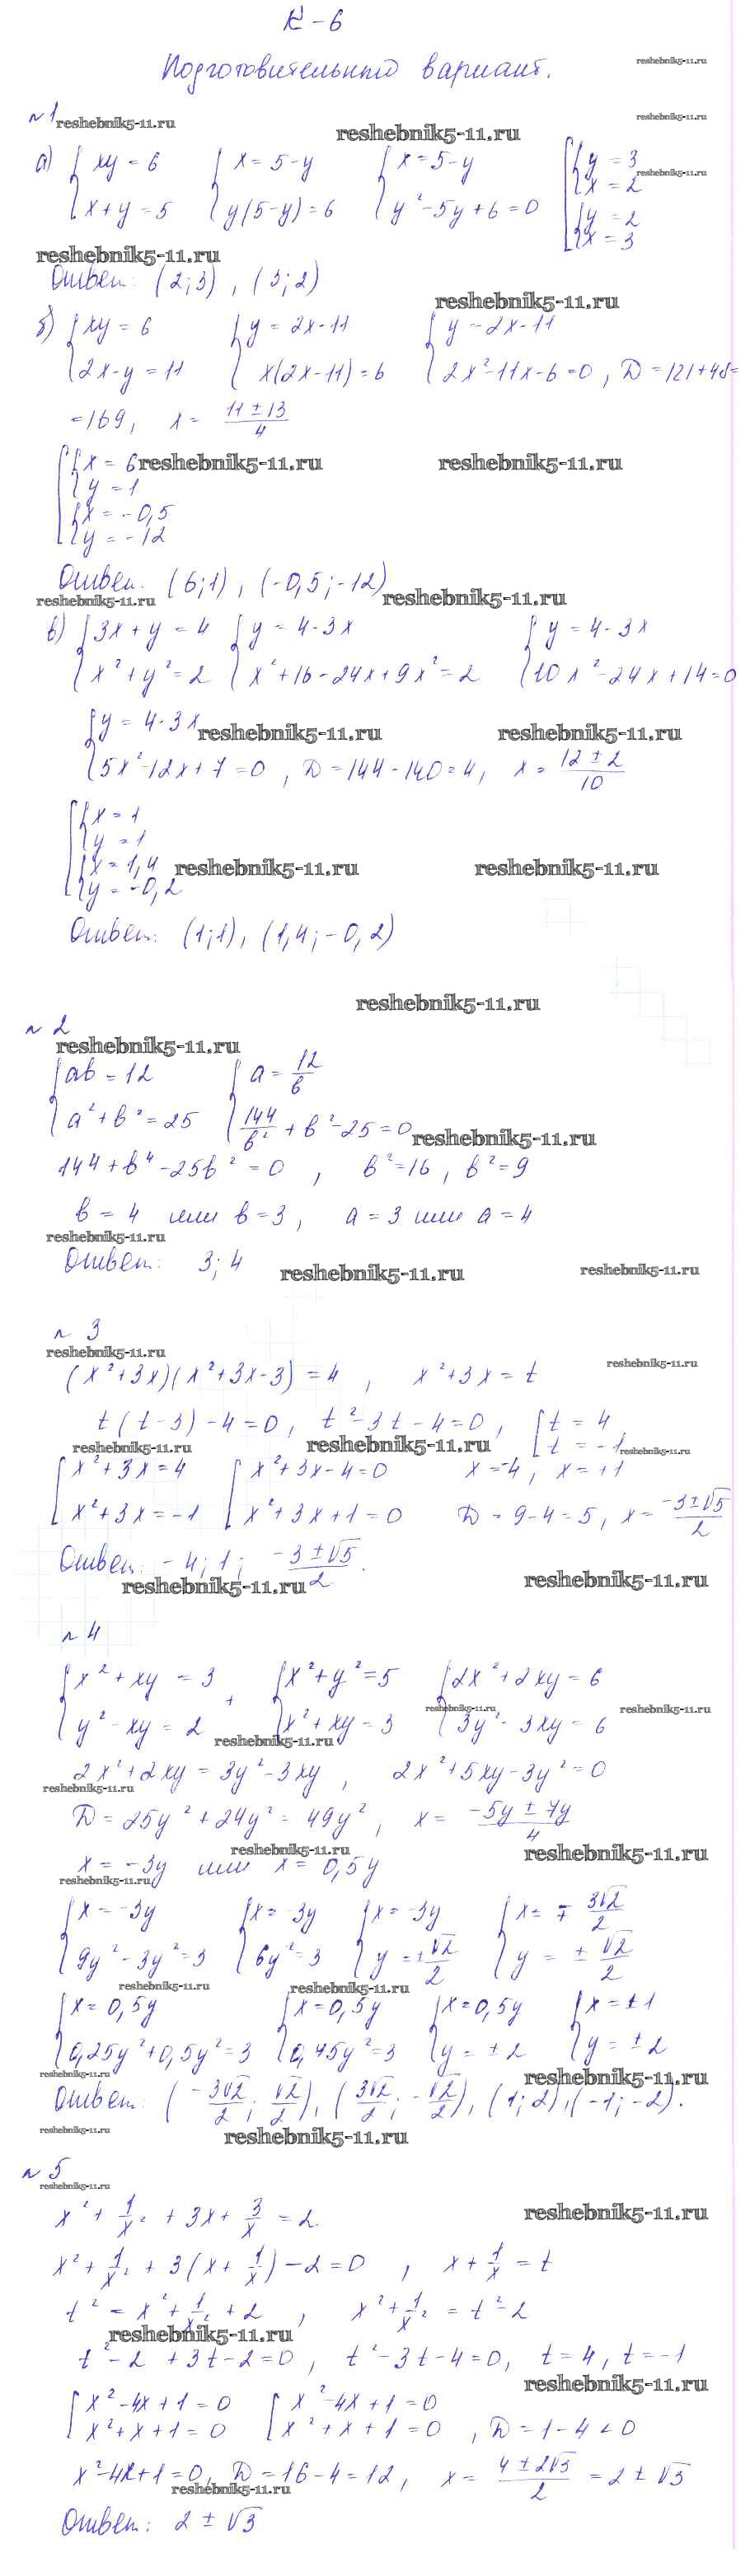 К-6
Подготовительный вариант.
reshebnik5-11.ru
№1 reshebnik5-11.ru reshebnik5-11.ru reshebnik5-11.ru
а) { xy = 6 { x = 5-y { x = 5-y [ { y = 3 reshebnik5-11.ru
x+y = 5 y(5-y) = 6 y²-5y+6=0 x = 2
{ y = 2
x = 3
reshebnik5-11.ru
Ответ: (2;3), (3;2)
reshebnik5-11.ru
б) { xy = 6 { y = 2x-11 { y = 2x-11
2x-y = 11 x(2x-11)=6 2x²-11x-6=0, D=121+48=
=169, x = (11±13)/4
[ { x = 6 reshebnik5-11.ru reshebnik5-11.ru
y = 1
{ x = -0,5
y = -12
Ответ. (6;1), (-0,5;-12)
reshebnik5-11.ru reshebnik5-11.ru
в) { 3x+y = 4 { y = 4-3x { y = 4-3x
x²+y²=2 x²+16-24x+9x²=2 10x²-24x+14=0
{ y = 4-3x reshebnik5-11.ru reshebnik5-11.ru
5x²-12x+7=0, D=144-140=4, x = (12±2)/10
[ { x = 1
y = 1
{ x = 1,4 reshebnik5-11.ru reshebnik5-11.ru
y = -0,2
Ответ: (1;1), (1,4;-0,2)
reshebnik5-11.ru
№2
reshebnik5-11.ru
{ ab = 12 { a = 12/b
a²+b²=25 144/b² + b²-25=0 reshebnik5-11.ru
144+b⁴-25b²=0, b²=16, b²=9
b = 4 или b=3, a=3 или a=4
reshebnik5-11.ru
Ответ: 3; 4 reshebnik5-11.ru reshebnik5-11.ru
№ 3
reshebnik5-11.ru reshebnik5-11.ru
(x²+3x)(x²+3x-3)=4, x²+3x=t
t(t-3)-4=0, t²-3t-4=0, [ t = 4
reshebnik5-11.ru reshebnik5-11.ru t = -1 reshebnik5-11.ru
[ x²+3x=4 [ x²+3x-4=0 x=-4, x=+1
x²+3x=-1 x²+3x+1=0 D=9-4=5, x = (-3±√5)/2
Ответ: -4; 1; (-3±√5)/2.
reshebnik5-11.ru reshebnik5-11.ru
№4
{ x²+xy = 3 + { x²+y²=5 { 2x²+2xy=6
y²-xy = 2 x²+xy=3 3y²-3xy=6
reshebnik5-11.ru reshebnik5-11.ru reshebnik5-11.ru
2x²+2xy=3y²-3xy, 2x²+5xy-3y²=0
reshebnik5-11.ru
D=25y²+24y²=49y², x = (-5y±7y)/4
reshebnik5-11.ru reshebnik5-11.ru
x = -3y или x = 0,5y
reshebnik5-11.ru
{ x = -3y { x = -3y { x = -3y { x = ∓3√2/2
9y²-3y²=3 6y²=3 y = ±√2/2 y = ±√2/2
reshebnik5-11.ru reshebnik5-11.ru
{ x = 0,5y { x = 0,5y { x = 0,5y { x = ±1
0,25y²+0,5y²=3 0,45y²=3 y = ±2 y = ±2
reshebnik5-11.ru reshebnik5-11.ru
Ответ: (-3√2/2; √2/2), (3√2/2; -√2/2), (1;2), (-1;-2).
reshebnik5-11.ru reshebnik5-11.ru
№5
reshebnik5-11.ru
x² + 1/x² + 3x + 3/x = 2 reshebnik5-11.ru
x² + 1/x² + 3(x + 1/x) - 2 = 0, x + 1/x = t
t² = x² + 1/x² + 2, x² + 1/x² = t²-2
reshebnik5-11.ru
t²-2+3t-2=0, t²-3t-4=0, t=4, t=-1
reshebnik5-11.ru
[ x²-4x+1=0 [ x²-4x+1=0
x²+x+1=0 x²+x+1=0, D=1-4<0
x²-4x+1=0, D=16-4=12, x = (4±2√3)/2 = 2±√3
reshebnik5-11.ru
Ответ: 2±√3